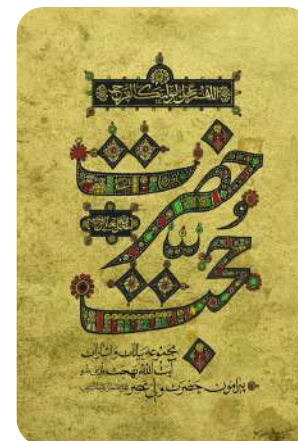 اللهم عجل لولیک الفرج
حضرت
حجت
مجموعه بیانات و اشارات
آیت الله بهجت
پیرامون حضرت ولی عصر